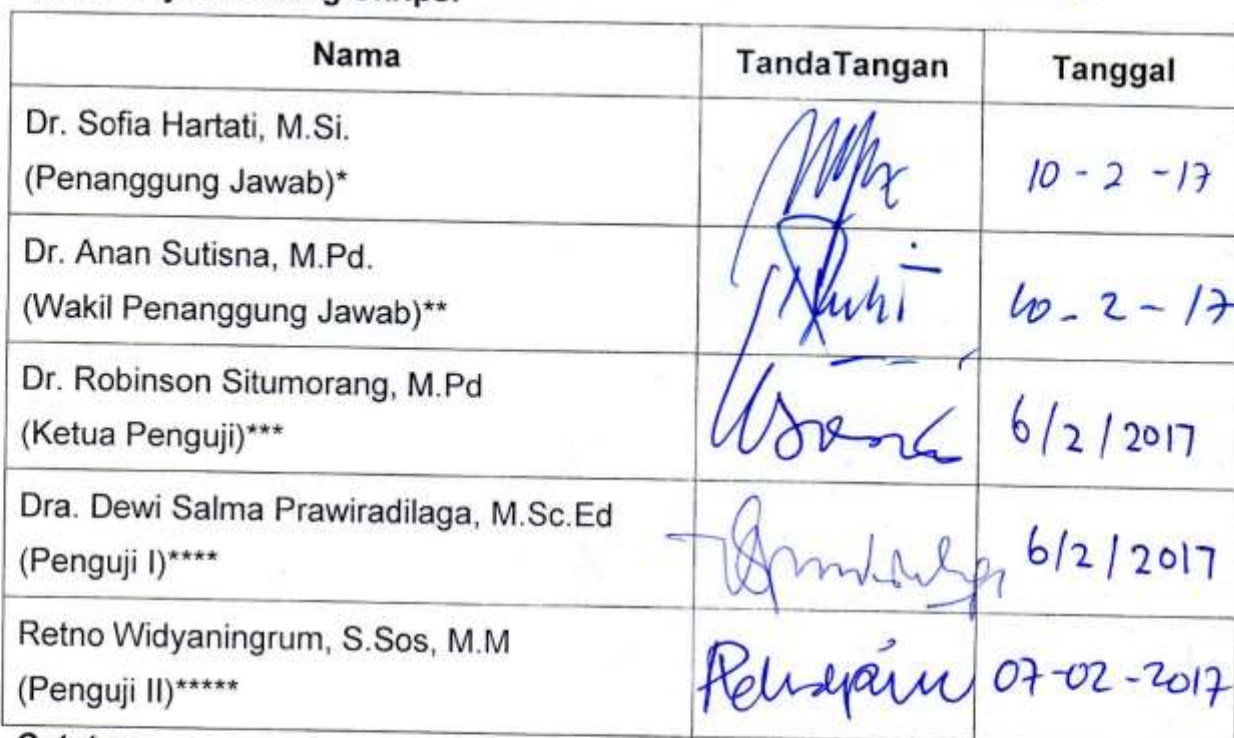 Nama TandaTangan Tanggal
Dr. Sofia Hartati, M.Si.
(Penanggung Jawab)* 10 - 2 - 17
Dr. Anan Sutisna, M.Pd.
(Wakil Penanggung Jawab)** 10 - 2 - 17
Dr. Robinson Situmorang, M.Pd
(Ketua Penguji)*** 6/2/2017
Dra. Dewi Salma Prawiradilaga, M.Sc.Ed
(Penguji I)**** 6/2/2017
Retno Widyaningrum, S.Sos, M.M
(Penguji II)***** 07-02-2017